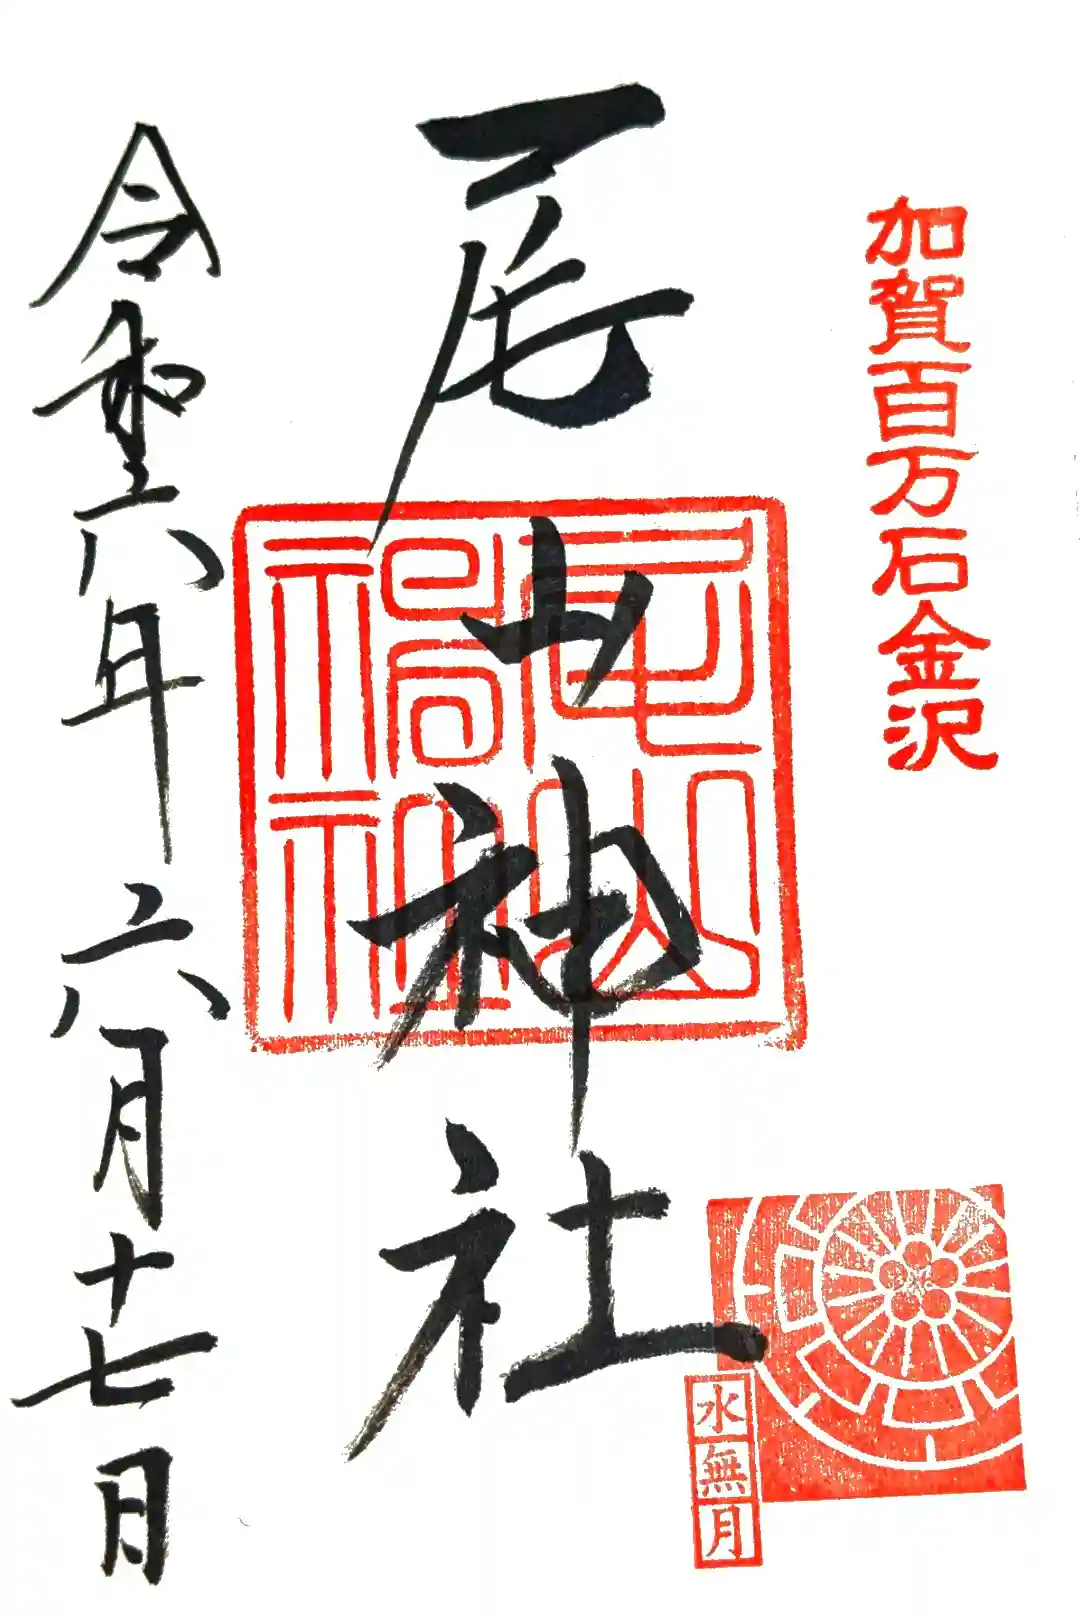 加賀百万石金沢
尾山神社
水無月
令和六年六月十七日